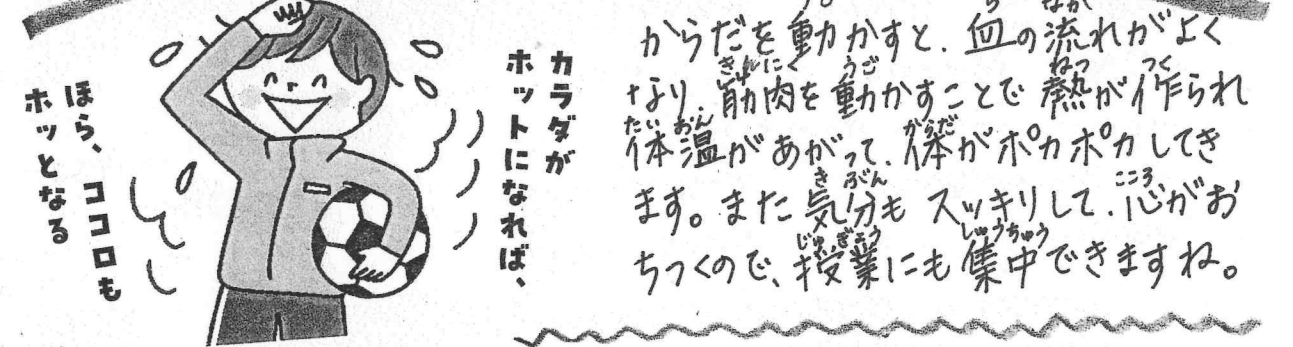 カラダが
ホットになれば、
ほら、ココロも
ホッとなる
からだを動かすと、血の流れがよく
なり、筋肉を動かすことで熱が作られ
体温があがって、体がポカポカしてき
ます。また気分もスッキリして、心がお
ちつくので、授業にも集中できますね。